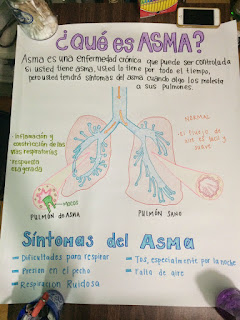 ¿Qué es ASMA?
Asma es una enfermedad crónica que puede ser controlada
Si usted tiene asma, usted lo tiene por todo el tiempo,
pero usted tendrá síntomas del asma cuándo algo los molesta
a sus pulmones.
- Inflamación y
constricción de las
vías respiratorias
- respuesta
exagerada
MOCOS
PULMÓN de ASMA
NORMAL
- El flujo de
aire es
suave
PULMÓN SANO
Síntomas del Asma
- Dificultades para respirar
- Presion en el pecho
- Respiracion Ruidosa
- Tos, especialmente por la noche
- Falta de aire